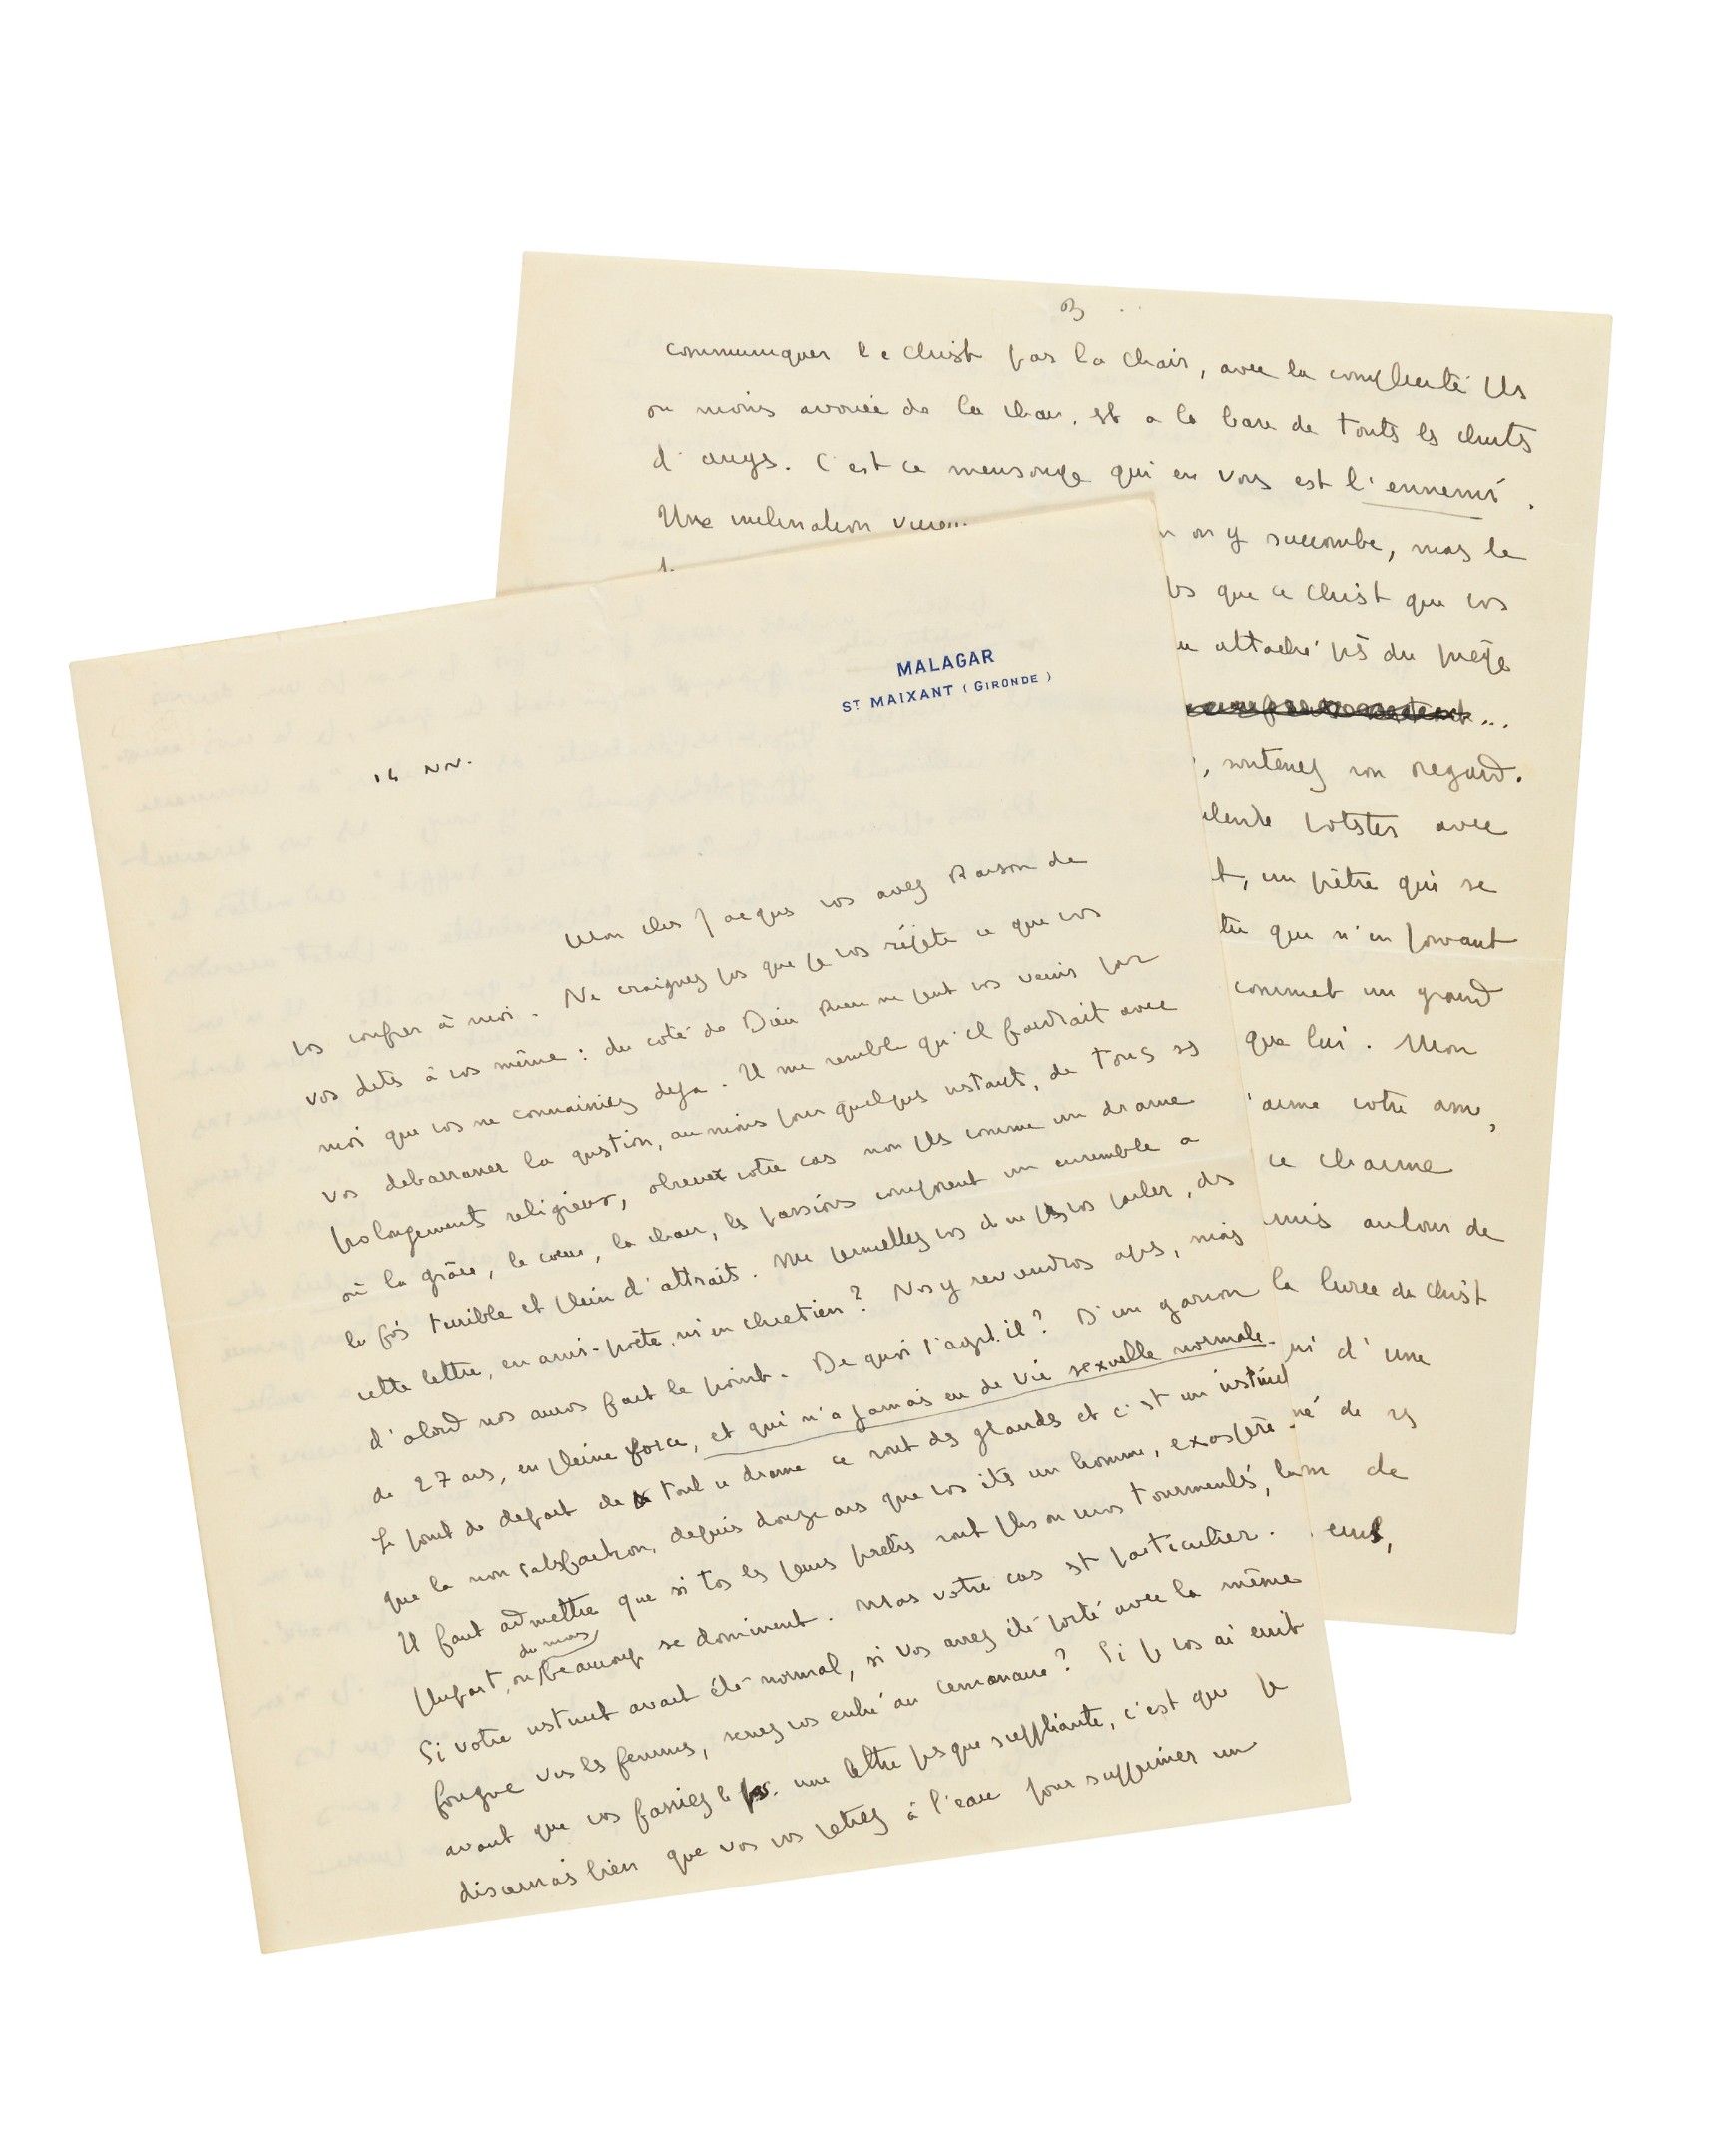 MALAGAR
ST MAIXANT (GIRONDE)
14 Nov.
Mon cher Jacques vos avez raison de
vos confier à moi. Ne craignez pas que je vos répète ce que vos
vos dites à vos même : du coté de Dieu rien ne peut vos venir par
moi que vos ne connaissiez deja. Il me semble qu'il faudrait avec
vos debarrasser la question, au moins pour quelques instants, de tous ses
prolongements religieux, observer votre cas non plus comme un drame
où la grâce, le coeur, la chair, les passions composent un ensemble a
la fois terrible et plein d'attraits. Me permettez vos de ne pas vos parler, ds
cette lettre, en ami-poète, ni en chretien ? Nos y reviendros aps, mais
d'abord nos auros fait le point. De quoi s'agit-il ? D'un garçon
de 27 ans, en pleine force, et qui n'a jamais eu de vie sexuelle normale.
Le point de depart de tout ce drame ce sont des glandes et c'est un instinct
que la non satisfaction, depuis douze ans que vos etes un homme, exaspère.
Il faut admettre que si tos les jeunes pretres sont plus ou mois tourmentés, la
plupart, ou du mois beaucoup se dominent. Mais votre cas est particulier.
Si votre instinct avait été normal, si vos aviez été porté avec la même
fougue vers les femmes, seriez vos entré au seminaire ? Si je vos ai ecrit
avant que vos fassiez le pas. une lettre psque suppliante, c'est que je
discernais bien que vos vos jetiez à l'eau pour supprimer un
3
communiquer le Christ par la chair, avec la complicité plus
ou moins avouée de la chair. est a la base de toutes les chutes
d'anges. C'est ce mensonge qui en vous est l'ennemi.
Une inclination
on y succombe, mais le
que ce Christ que vos
attaché ps du piège
...
, soutenez son regard.
avec
, un prêtre qui se
que n'en pouvant
commet un grand
que lui. Mon
aime votre ame,
ce charme
autour de
la livrée du Christ
d'une
de ses
de